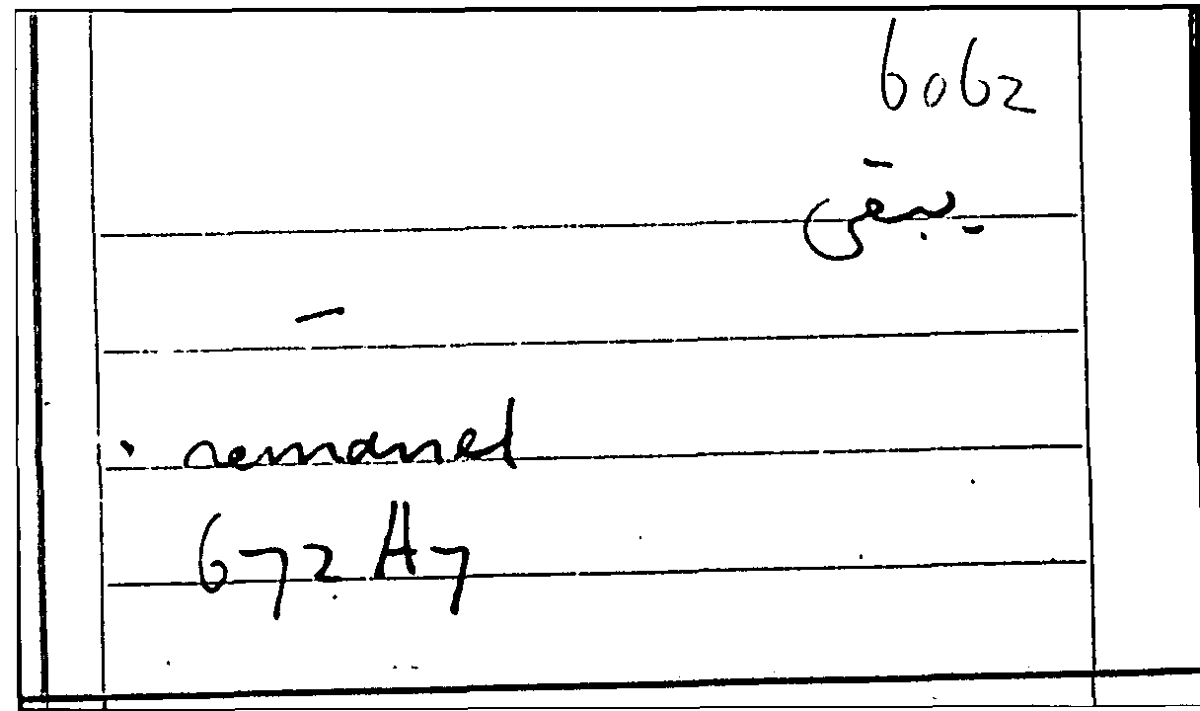 6062
يبقى
remanet
672 A7